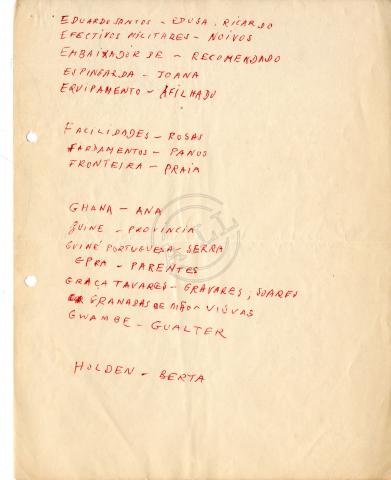 EDUARDO SANTOS - EDUSA, RICARDO
EFECTIVOS MILITARES - NOIVOS
EMBAIXADOR DE - RECOMENDADO
ESPINGARDA - JOANA
EQUIPAMENTO - AFILHADO
FACILIDADES - ROSAS
FARDAMENTOS - PANOS
FRONTEIRA - PRAIA
GHANA - ANA
GUINE - PROVINCIA
GUINÉ PORTUGUESA - SERRA
GPRA - PARENTES
GRAÇA TAVARES - GRAVARES, SOARES
GRANADAS DE MÃO - VIÚVAS
GWAMBE - GUALTER
HOLDEN - BERTA